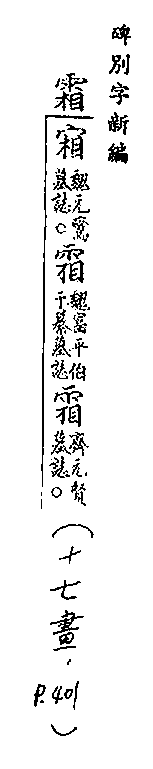 碑別字新編
霜
魏元鷙墓誌。
魏富平伯于纂墓誌
齊元賢墓誌。
(十七畫, P.401)